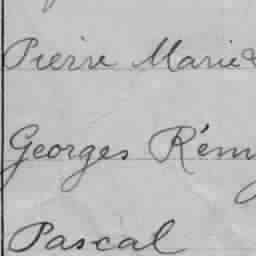 Pierre Marie
Georges Rémy
Pascal